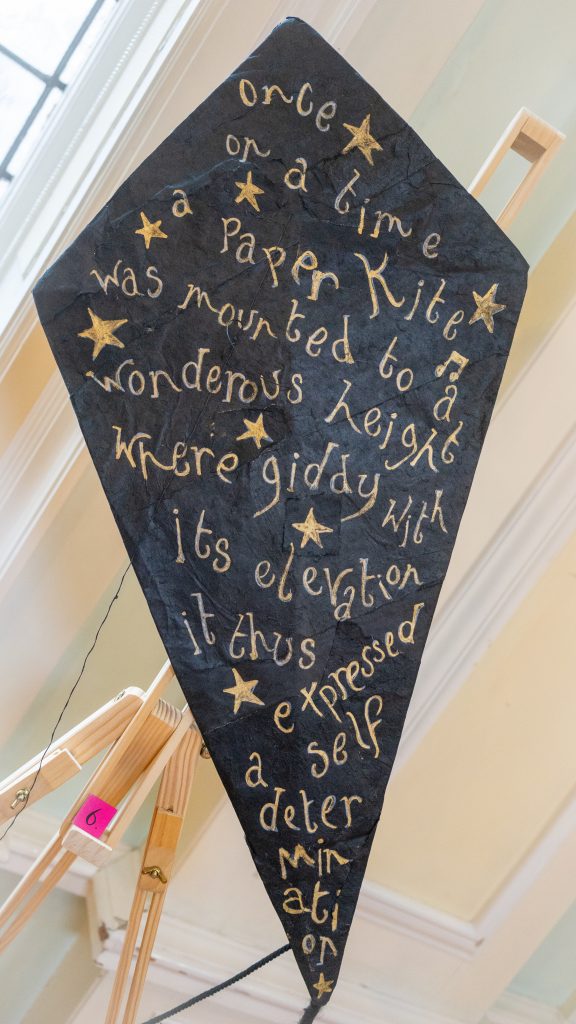 once
on a time
a Paper Kite
was mounted to a
wonderous height
where giddy with
its elevation
it thus
expressed
a self
deter
min
ati
on
6.